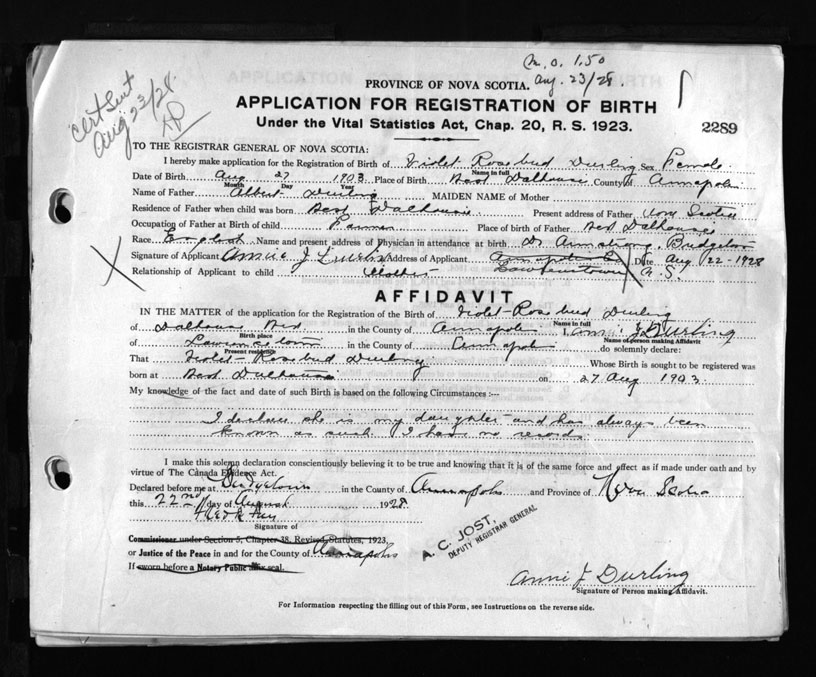 M.O. 1.50
Aug. 23/28.
Cert Sent
Aug 23/28.
PROVINCE OF NOVA SCOTIA.
APPLICATION FOR REGISTRATION OF BIRTH
Under the Vital Statistics Act, Chap. 20, R. S. 1923.
2289
TO THE REGISTRAR GENERAL OF NOVA SCOTIA:
I hereby make application for the Registration of Birth of Violet Rosebud Durling Sex Female
Name in full
Date of Birth Aug 27 1903 Place of Birth East Dalhousie County of Annapolis
Month Day Year
Name of Father Albert Durling MAIDEN NAME of Mother
Residence of Father when child was born East Dalhousie Present address of Father Nova Scotia
Occupation of Father at Birth of child Farmer Place of birth of Father East Dalhousie
Race English Name and present address of Physician in attendance at birth Dr Armstrong, Bridgetown
Signature of Applicant Annie J Durling Address of Applicant Annapolis Co Date Aug 22-1928
Relationship of Applicant to child Mother Lawrencetown N.S.
AFFIDAVIT
IN THE MATTER of the application for the Registration of the Birth of Violet-Rosebud Durling
Name in full
of Dalhousie East in the County of Annapolis I, Annie J Durling
Birth place Name of person making Affidavit
of Lawrencetown in the County of Annapolis do solemnly declare:
Present residence
That Violet-Rosebud Durling Whose Birth is sought to be registered was
born at East Dalhousie on 27 Aug 1903.
My knowledge of the fact and date of such Birth is based on the following Circumstances :—
I declare she is my daughter and has always been
known as such I have no records.
I make this solemn declaration conscientiously believing it to be true and knowing that it is of the same force and effect as if made under oath and by
virtue of The Canada Evidence Act.
Declared before me at Bridgetown in the County of Annapolis and Province of Nova Scotia
this 22nd day of August 1928.
Signature of
Commissioner under Section 5, Chapter 38, Revised Statutes, 1923,
or Justice of the Peace in and for the County of Annapolis
If sworn before a Notary Public affix seal.
A. C. JOST,
DEPUTY REGISTRAR GENERAL
Annie J Durling
Signature of Person making Affidavit.
For Information respecting the filling out of this Form, see Instructions on the reverse side.